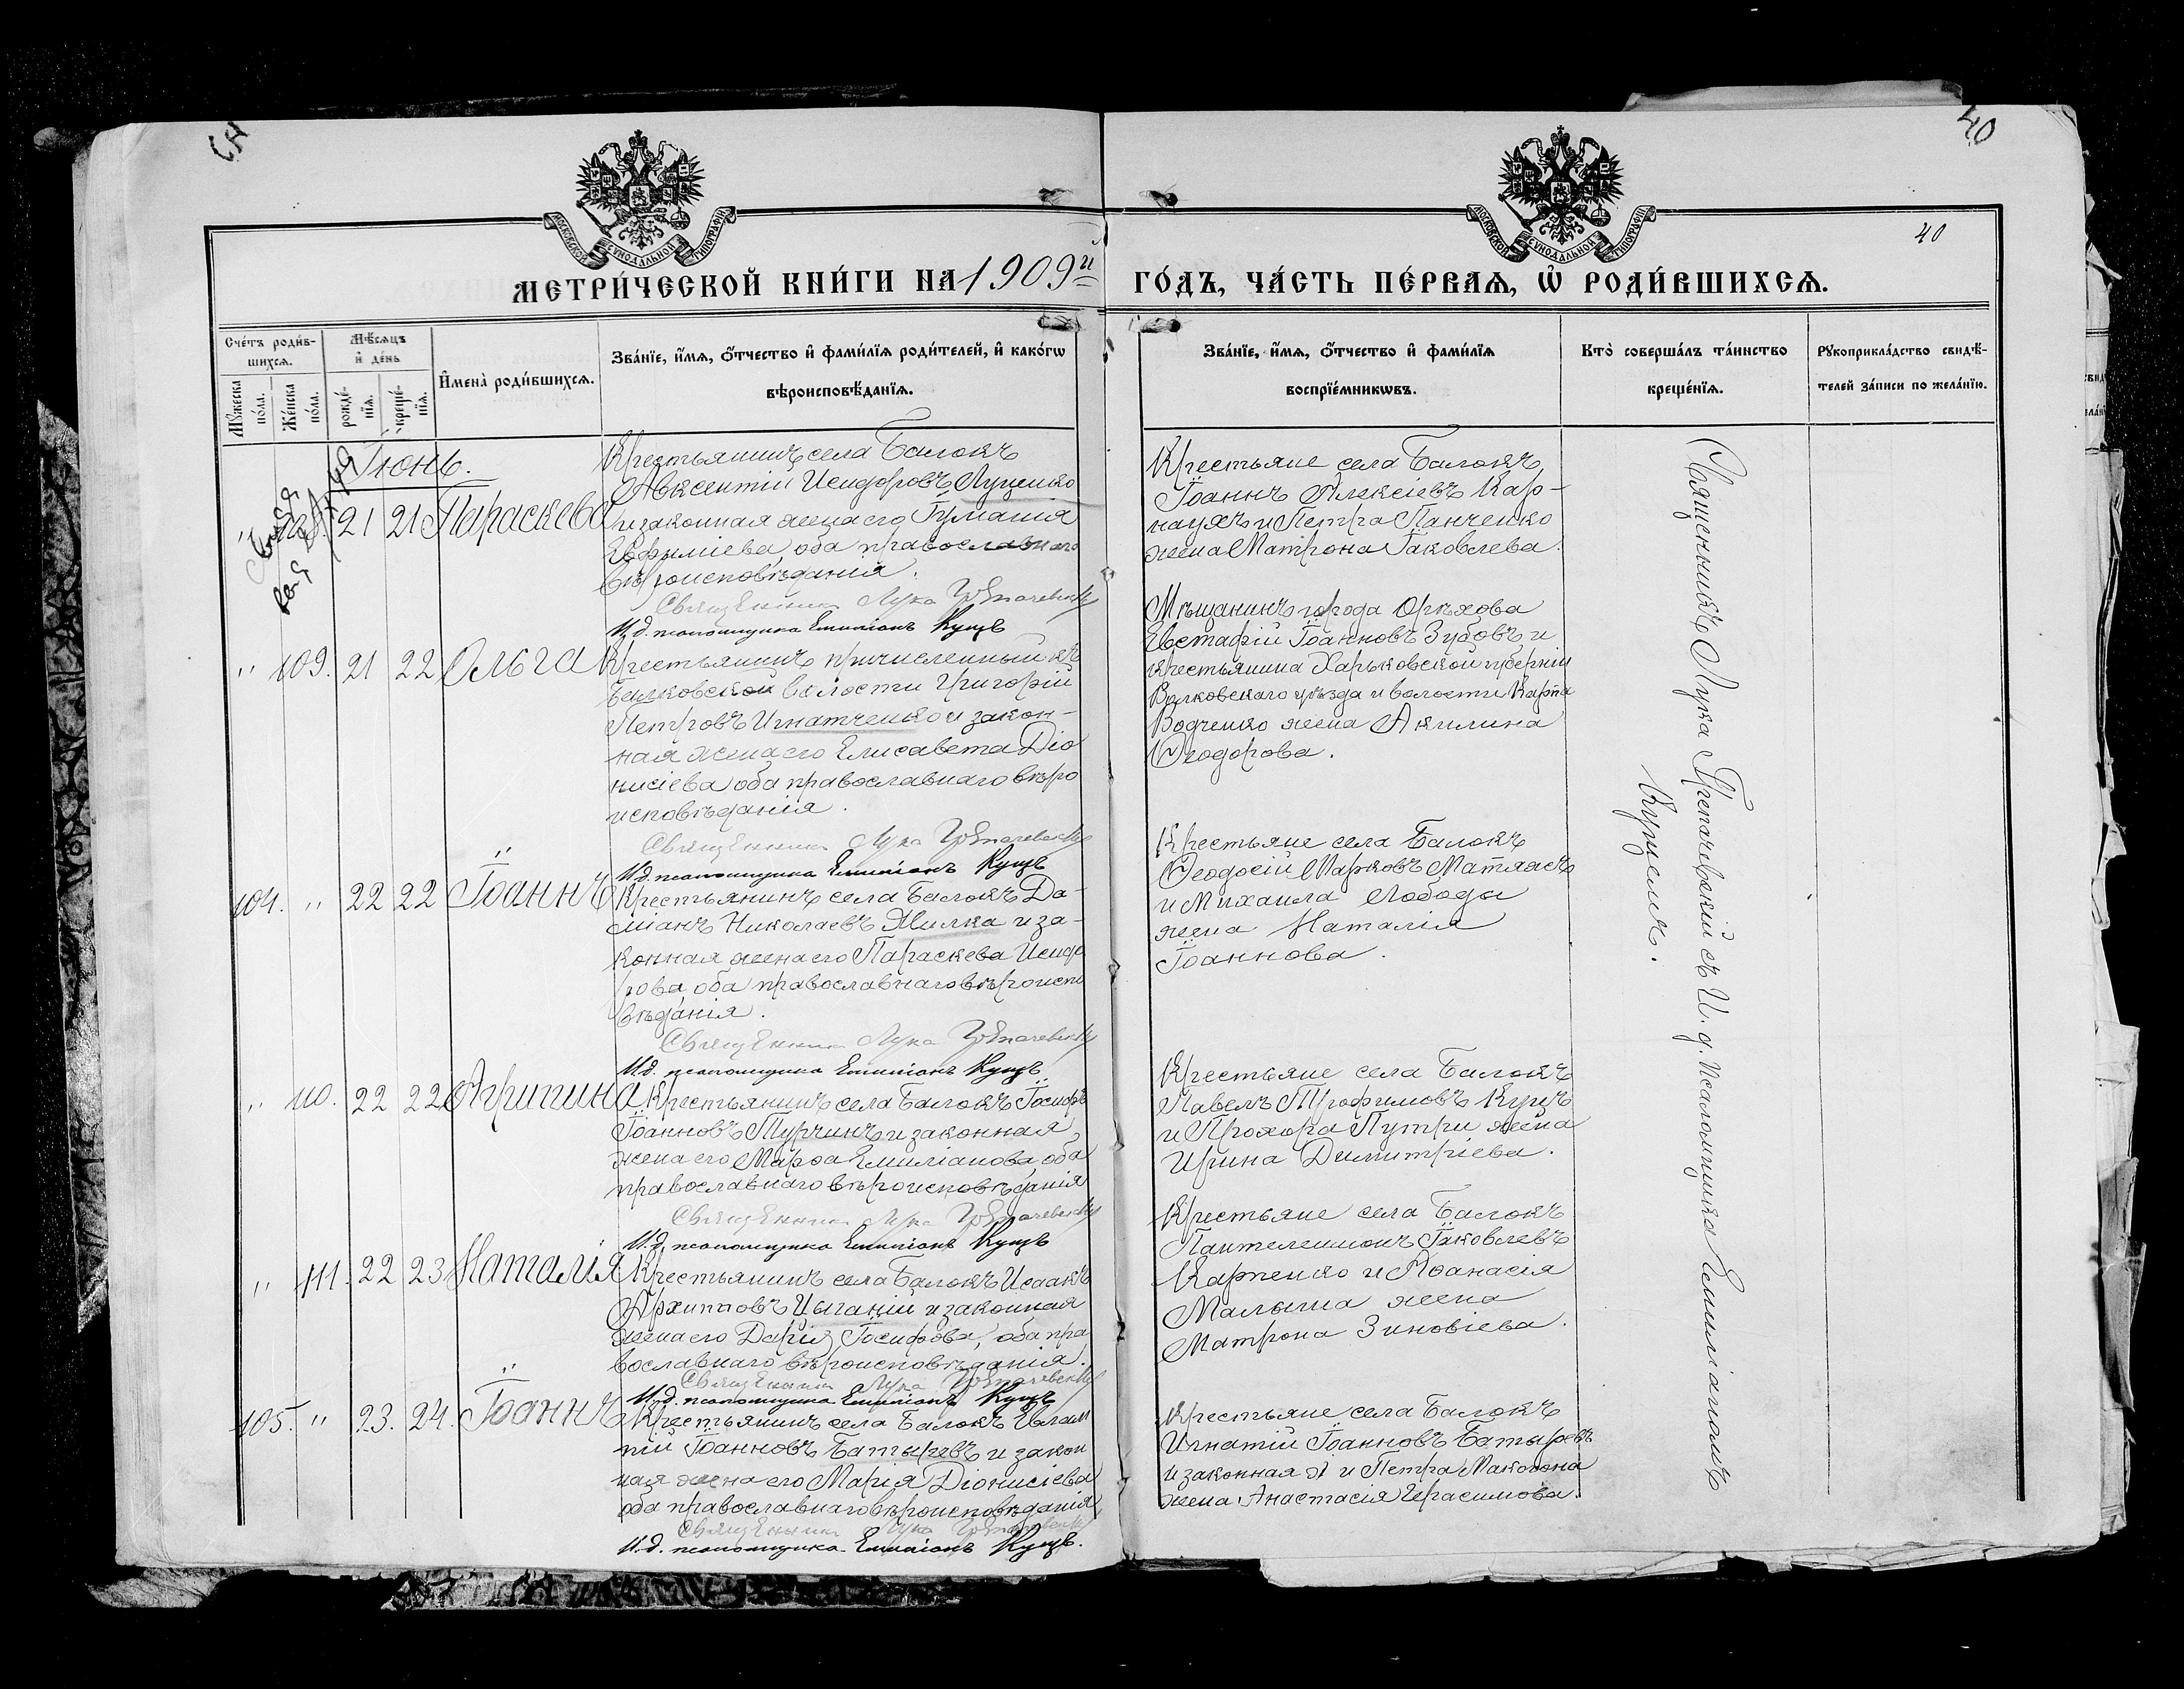 40
40
МОСКОВСКОЙ СѴНОДАЛЬНОЙ ТИПОГРАФІИ
МОСКОВСКОЙ СѴНОДАЛЬНОЙ ТИПОГРАФІИ
МЕТРИ́ЧЕСКОЙ КНИ́ГИ НА 1909й ГО́ДЪ, ЧА́СТЬ ПЕ́РВАѦ, Ѡ҆ РОДИ́ВШИХСѦ.
Сче́тъ роди́в-
шихсѧ.
Мꙋ́жеска
по́ла.
Же́нска
по́ла.
Мѣ́сѧцъ
и҆ де́нь
рожде́-
нїѧ.
креще́-
нїѧ.
И҆мена̀ роди́вшихсѧ.
Зва́нїе, и҆́мѧ, ѻ҆́тчество и҆ фами́лїѧ роди́телей, и҆ како́гѡ
вѣроисповѣ́данїѧ.
Зва́нїе, и҆́мѧ, ѻ҆́тчество и҆ фами́лїѧ
воспрїе́мникѡвъ.
Кто̀ соверша́лъ та́инство
креще́нїѧ.
Рꙋкоприкла́дство свидѣ́-
телей за́писи по жела́нїю.
Іюнь.
" 108. 21 21 Параскева
Крестьянинъ села Балокъ
Авксентій Исидоровъ Луценко
и законная жена его Гуманія
Евфиміева, оба православнаго
вѣроисповѣданія.
Священникъ Лука
И.д. псаломщика Емиліанъ Куцъ
Крестьяне села Балокъ
Іоаннъ Алексіевъ Кар-
наухъ и Петра Панченко
жена Матрона Іаковлева.
" 109. 21 22 Ольга
Крестьянинъ причисленный къ
Балковской волости Григорій
Петровъ Игнатченко и закон-
ная жена его Елисавета Діо
нисіева оба православнаго вѣро
исповѣданія.
Священникъ Лука
И.д. псаломщика Емиліанъ Куцъ
Мѣщанинъ города Орѣхова
Евстафій Іоанновъ Зубовъ и
крестьянина Харьковской губерніи
Валковскаго уѣзда и волости Карпа
Водченко жена Акилина
Ѳеодорова.
104. " 22 22 Іоаннъ
Крестьянинъ села Балокъ Да-
міанъ Николаевъ Жилка и за-
конная жена его Параскева Исидо
рова, оба православнаго вѣроиспо
вѣданія.
Священникъ Лука
И.д. псаломщика Емиліанъ Куцъ
Крестьяне села Балокъ
Ѳеодосій Марковъ Матяжъ
и Михаила Лободы
жена Наталія
Іоаннова.
" 110. 22 22 Агрипина
Крестьянинъ села Балокъ Іосифъ
Іоанновъ Турчинъ и законная
жена его Марѳа Емиліанова, оба
православнаго вѣроисповѣданія
Священникъ Лука
И.д. псаломщика Емиліанъ Куцъ
Крестьяне села Балокъ
Павелъ Трофимовъ Куцъ
и Прохора Путри жена
Ирина Димитріева.
" 111. 22 23 Наталія
Крестьянинъ села Балокъ Исаакъ
Архиповъ Цыганій и законная
жена его Дарія Іосифова, оба пра
вославнаго вѣроисповѣданія.
Священникъ Лука
И.д. псаломщика Емиліанъ Куцъ
Крестьяне села Балокъ
Пантелеимонъ Іаковлевъ
Карпенко и Аѳанасія
Малыша жена
Матрона Зиновіева.
105. " 23. 24. Іоаннъ
Крестьянинъ села Балокъ Евлам
пій Іоанновъ Батыревъ и закон
ная жена его Марія Діонисіева
оба православнаго вѣроисповѣданія
Священникъ Лука
И.д. псаломщика Емиліанъ Куцъ.
Крестьяне села Балокъ
Игнатій Іоанновъ Батыревъ
и законная ж и Петра Маковона
жена Анастасія Герасимова.
Священникъ Лука Грепачевскій съ И. д. псаломщика Емиліаномъ
Куцемъ.